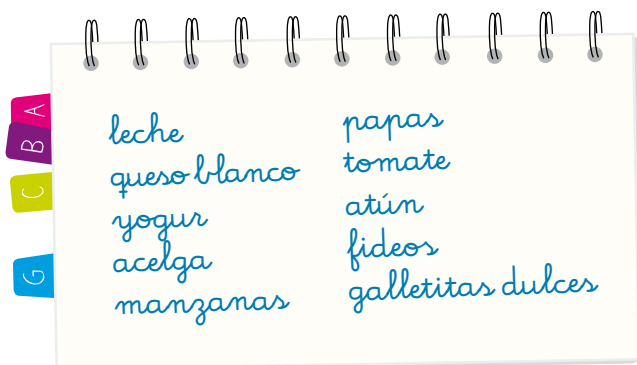 A
B
C
G
leche
queso blanco
yogur
acelga
manzanas
papas
tomate
atún
fideos
galletitas dulces